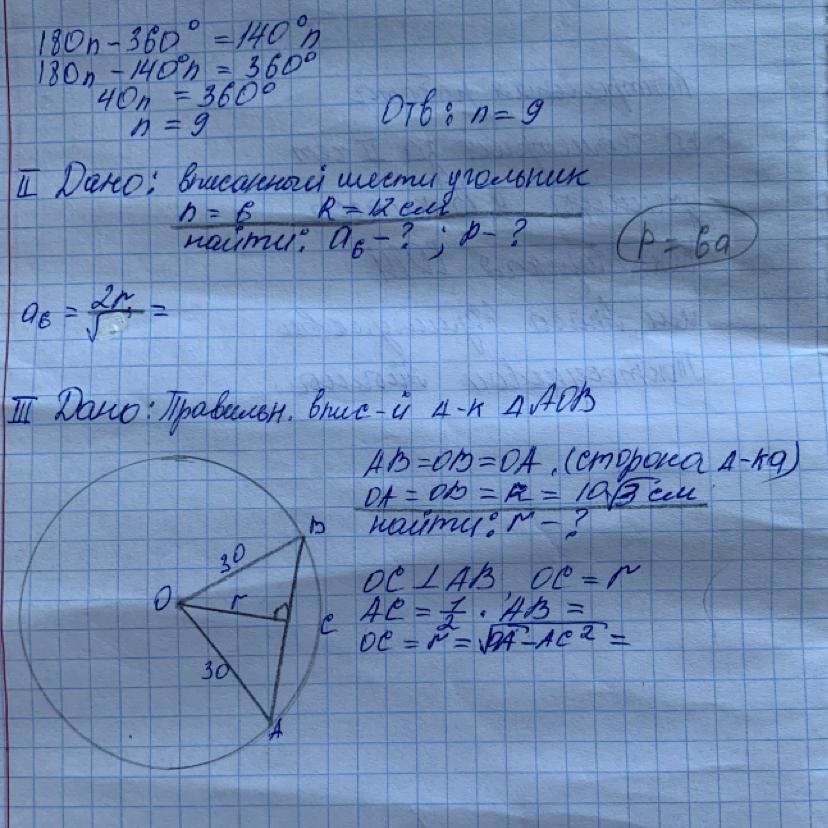 180n - 360° = 140°n
180n - 140°n = 360°
40n = 360°
n = 9
Отв: n = 9
II Дано: вписанный шести угольник
n = 6 R = 12 см
найти: a₆ - ? ; P - ?
P = 6a
a₆ = 2r/√ =
III Дано: Правильн. впис-й Δ-к ΔAOB
AB = OB = OA, (сторона Δ-ка)
OA = OB = R = 10√3 см
найти: r - ?
B
30
O
r
C
30
A
OC ⊥ AB, OC = r
AC = 1/2 · AB =
OC = r = √OA - AC² =